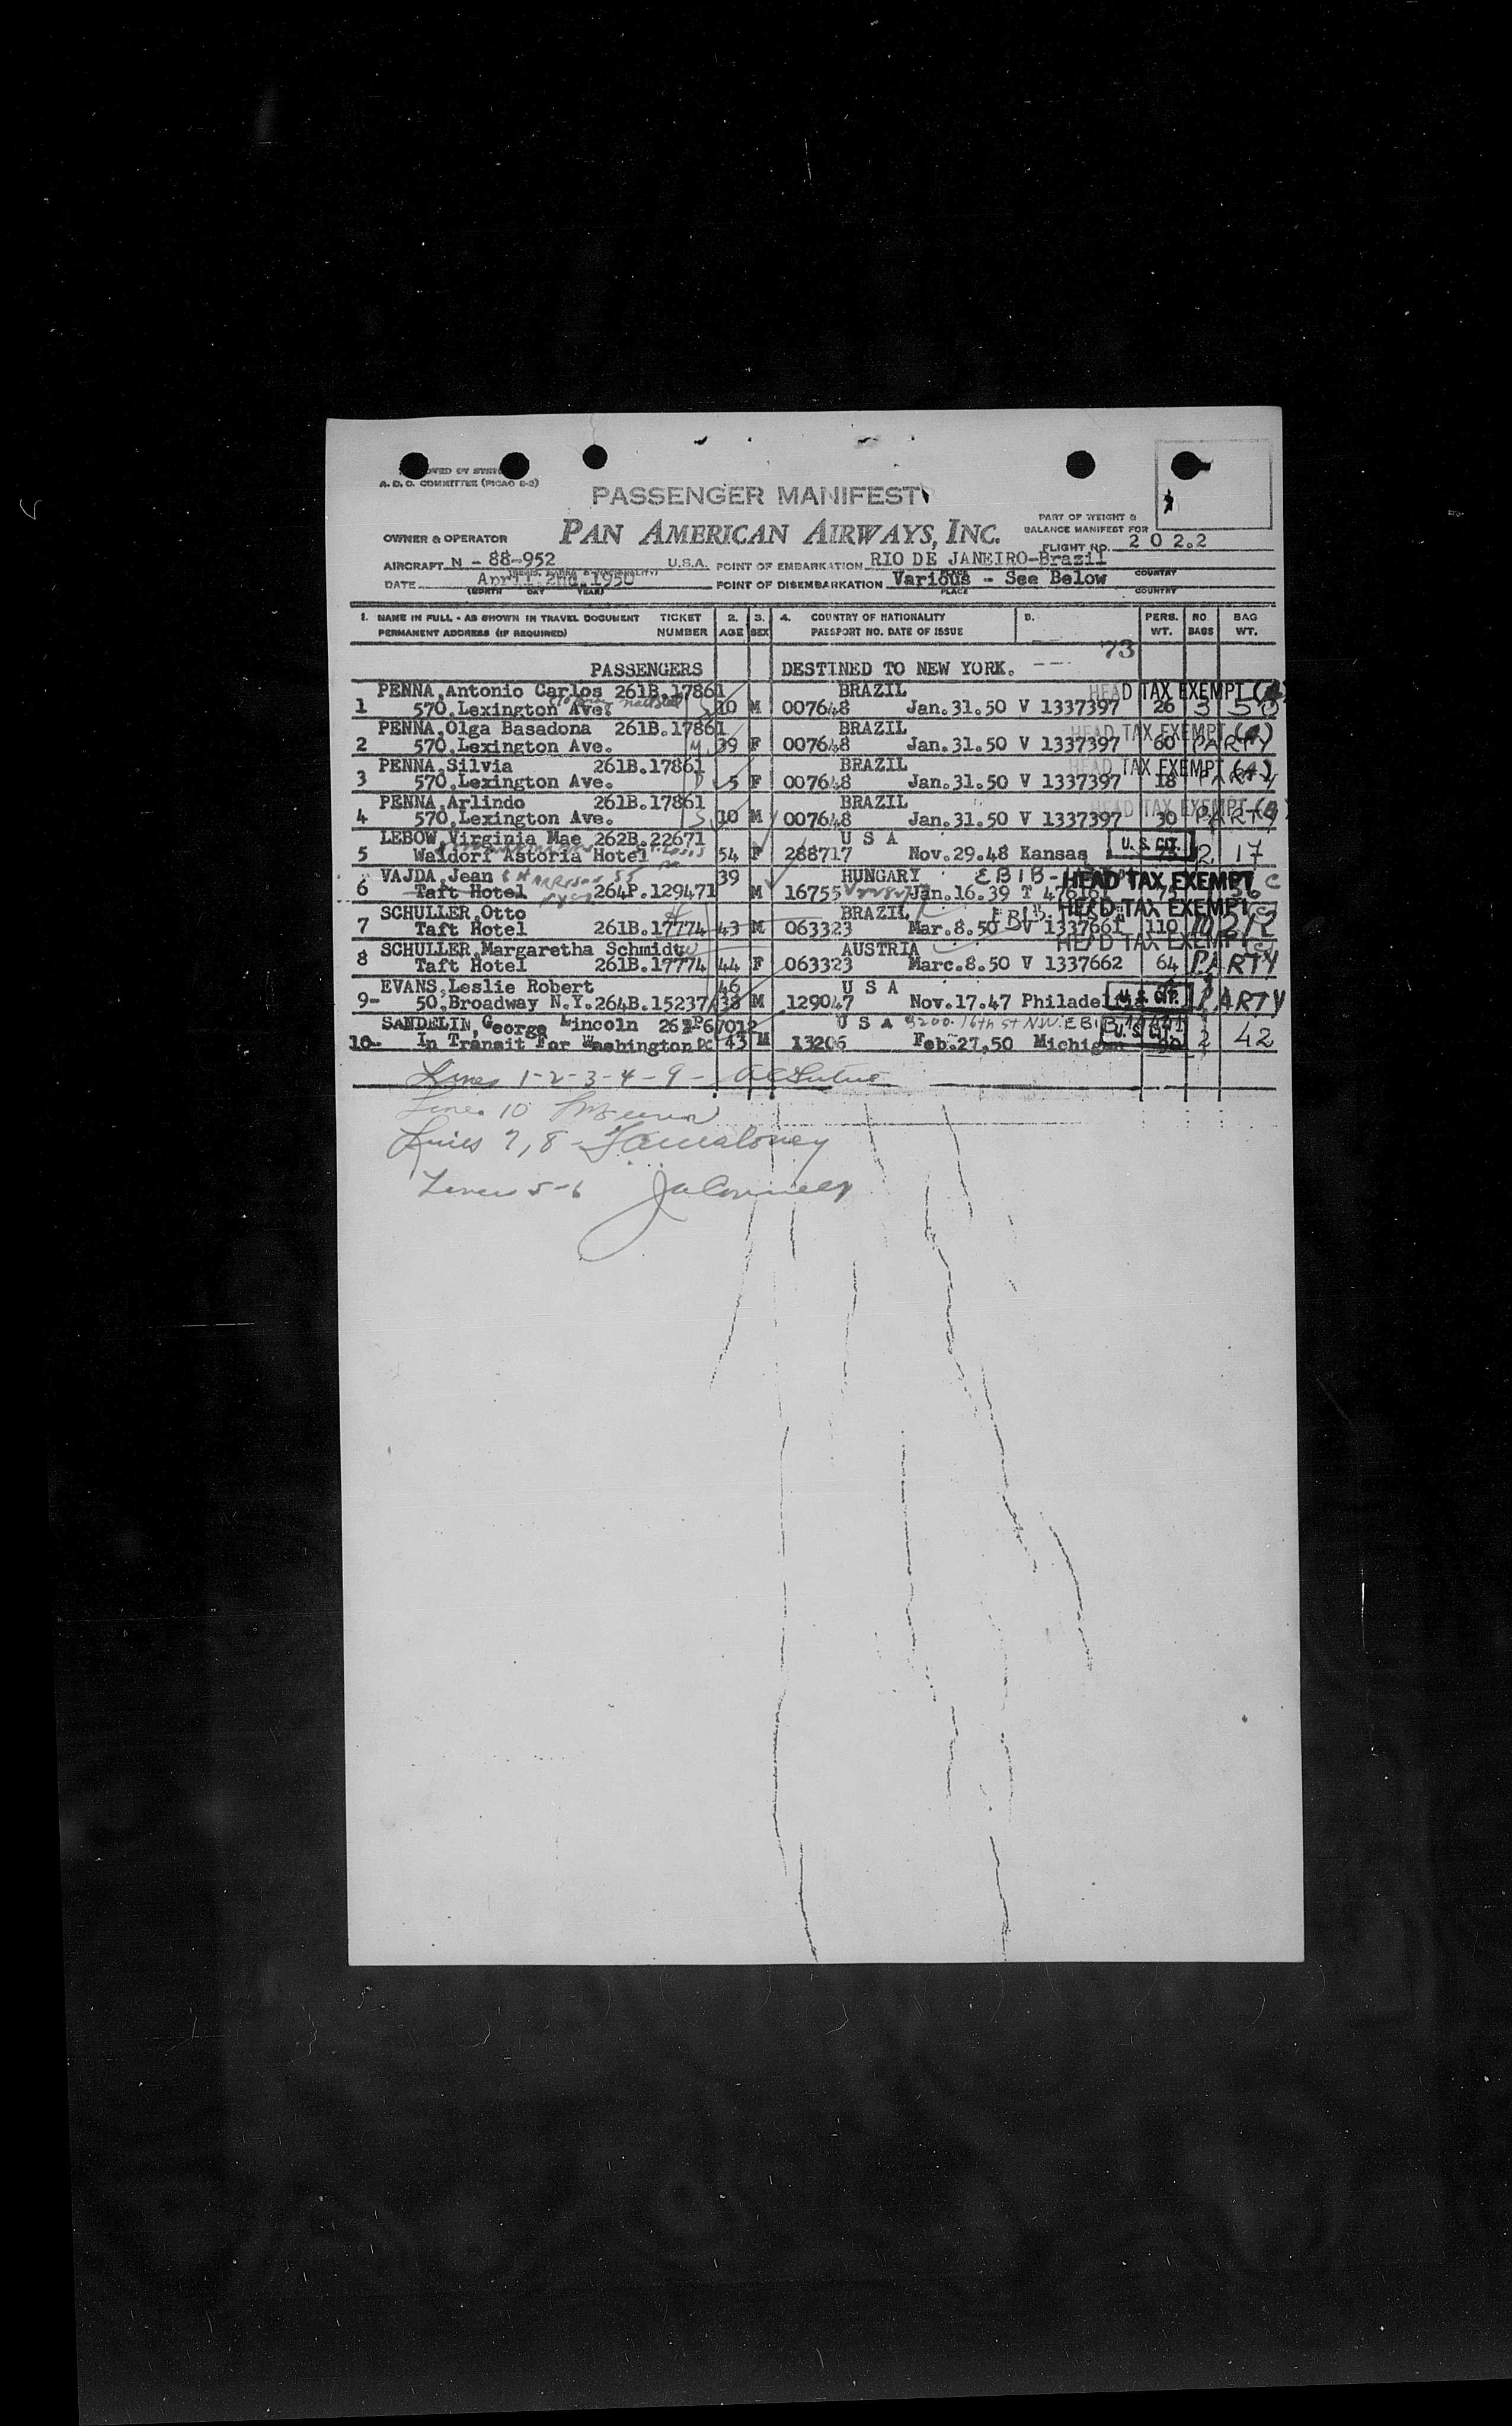 A. D. C. COMMITTEE (PICAO 2-2)
PASSENGER MANIFEST
PART OF WEIGHT &
BALANCE MANIFEST FOR
OWNER & OPERATOR PAN AMERICAN AIRWAYS, INC.
FLIGHT NO. 2 0 2.2
AIRCRAFT N - 88-952 U.S.A. POINT OF EMBARKATION RIO DE JANEIRO-Brazil
PLACE COUNTRY
DATE April 2nd. 1950 POINT OF DISEMBARKATION Various - See Below
(MONTH DAY YEAR) PLACE COUNTRY
1. NAME IN FULL - AS SHOWN IN TRAVEL DOCUMENT TICKET 2. 3. 4. COUNTRY OF NATIONALITY 5. PERS. NO. BAG
PERMANENT ADDRESS (IF REQUIRED) NUMBER AGE SEX PASSPORT NO. DATE OF ISSUE WT. BAGS WT.
73
PASSENGERS DESTINED TO NEW YORK.
PENNA,Antonio Carlos 261B.17861 BRAZIL HEAD TAX EXEMPT (A)
1 570.Lexington Ave. S 10 M 007648 Jan.31.50 V 1337397 26 3 50
PENNA,Olga Basadona 261B.17861 BRAZIL HEAD TAX EXEMPT (A)
2 570.Lexington Ave. M 39 F 007648 Jan.31.50 V 1337397 60 PARTY
PENNA,Silvia 261B.17861 BRAZIL HEAD TAX EXEMPT (A)
3 570.Lexington Ave. D 5 F 007648 Jan.31.50 V 1337397 18 PARTY
PENNA,Arlindo 261B.17861 BRAZIL HEAD TAX EXEMPT (A)
4 570.Lexington Ave. S 10 M 007648 Jan.31.50 V 1337397 30 PARTY
LEBOW,Virginia Mae 262B.22671 U S A U. S. CIT.
5 Waldorf Astoria Hotel 54 F 288717 Nov.29.48 Kansas 2 17
VAJDA,Jean 6 HARRISON ST 39 HUNGARY EBIB- HEAD TAX EXEMPT C
6 Taft Hotel 264P.129471 M 16755 Jan.16.39 T 476161
SCHULLER,Otto H BRAZIL HEAD TAX EXEMPT C
7 Taft Hotel 261B.17774 43 M 063323 Mar.8.50 V 1337661 110 10 212
SCHULLER,Margaretha Schmidt W AUSTRIA HEAD TAX EXEMPT C
8 Taft Hotel 261B.17774 44 F 063323 Marc.8.50 V 1337662 64 PARTY
EVANS,Leslie Robert 46 U S A
9- 50.Broadway N.Y.264B.15237 38 M 129047 Nov.17.47 Philadel U. S. CIT. PARTY
SANDELIN,George Lincoln U S A 8200 16th St NW. EBIB
10- In Transit For Washington DC 43 M 13206 Feb.27,50 Michigan U. S. CIT. 2 42
Lines 1-2-3-4-9-
Lines 10
Lines 7,8 - Maloney
Lines 5-6